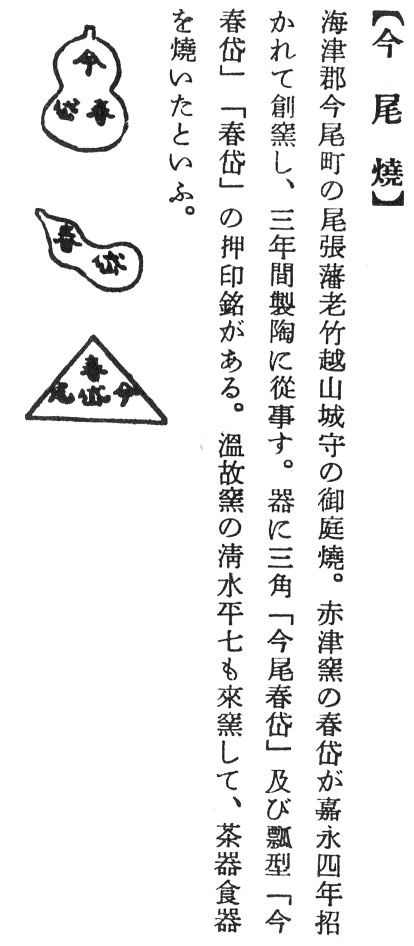 【今尾燒】
海津郡今尾町の尾張藩老竹越山城守の御庭燒。赤津窯の春岱が嘉永四年招
かれて創窯し、三年間製陶に從事す。器に三角「今尾春岱」及び瓢型「今
春岱」「春岱」の押印銘がある。溫故窯の淸水平七も來窯して、茶器食器
を燒いたといふ。
今
春岱
春
岱
春
今岱尾